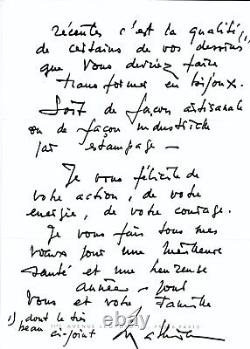 récentes c'est la qualité (1)
de certains de vos dessins
que vous devriez faire
transformer en bijoux.
Soit de façon artisanale
ou de façon industrielle
par estampage –
Je vous félicite de
votre action, de votre
énergie, de votre courage.
Je vous fais tous mes
vœux pour une meilleure
santé et une heureuse
année – pour
vous et votre famille
1) dont le très
beau ci-joint